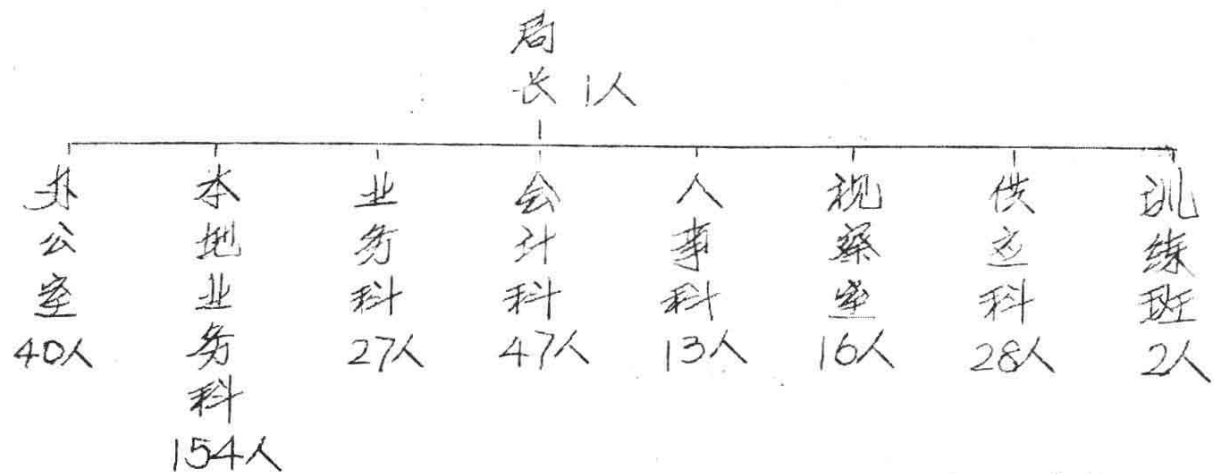 局长 1人
办公室 40人
本地业务科 154人
业务科 27人
会计科 47人
人事科 13人
视察室 16人
供应科 28人
训练班 2人